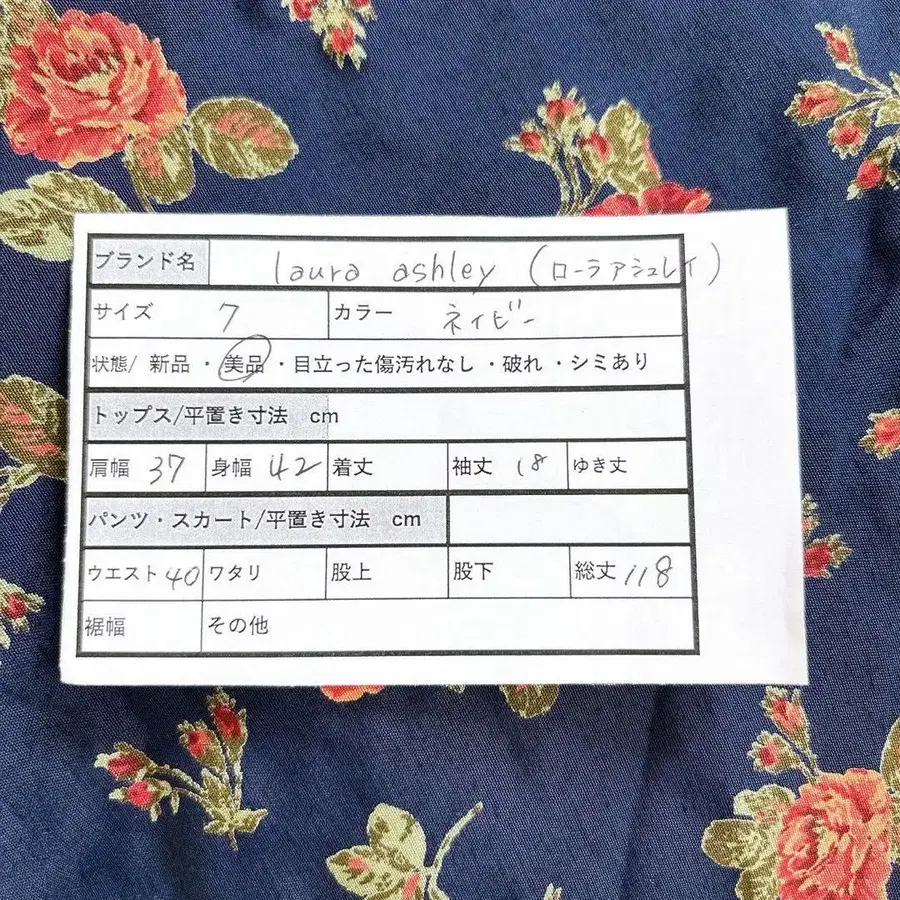 ブランド名 laura ashley (ローラアシュレイ)
サイズ 7 カラー ネイビー
状態/ 新品 ・ 美品 ・目立った傷汚れなし ・破れ ・シミあり
トップス/平置き寸法 cm
肩幅 37 身幅 42 着丈 袖丈 18 ゆき丈
パンツ・スカート/平置き寸法 cm
ウエスト 40 ワタリ 股上 股下 総丈 118
裾幅 その他